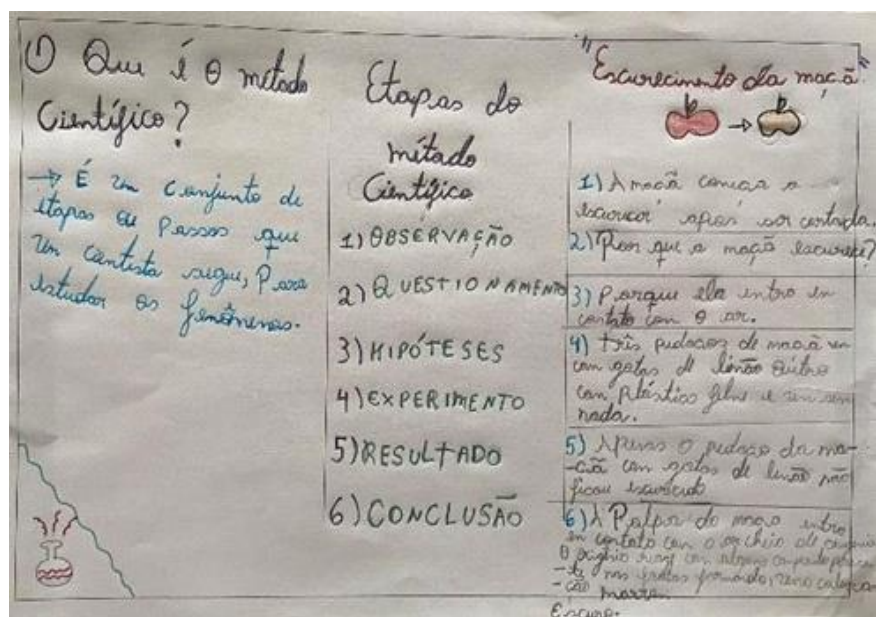 ① Que é o método
Científico?
→ É um conjunto de
etapas ou Passos que
um cientista segue, Para
estudar os fenômenos.
Etapas do
método
Científico
1) OBSERVAÇÃO
2) QUESTIONAMENTO
3) HIPÓTESES
4) EXPERIMENTO
5) RESULTADO
6) CONCLUSÃO
"Escurecimento da maçã"
1) A maçã começa a
escurecer após ser cortada.
2) Por que a maçã escurece?
3) Porque ela entra em
contato com o ar.
4) três pedaços de maçã um
com gotas de limão outro
com plástico filme e um sem
nada.
5) Apenas o pedaço da ma-
-çã com gotas de limão não
ficou escurecido
6) A Polpa da entra
em contato com o ar cheio de
O com alguns
nas frutas formando uma
marrom
Escuro.